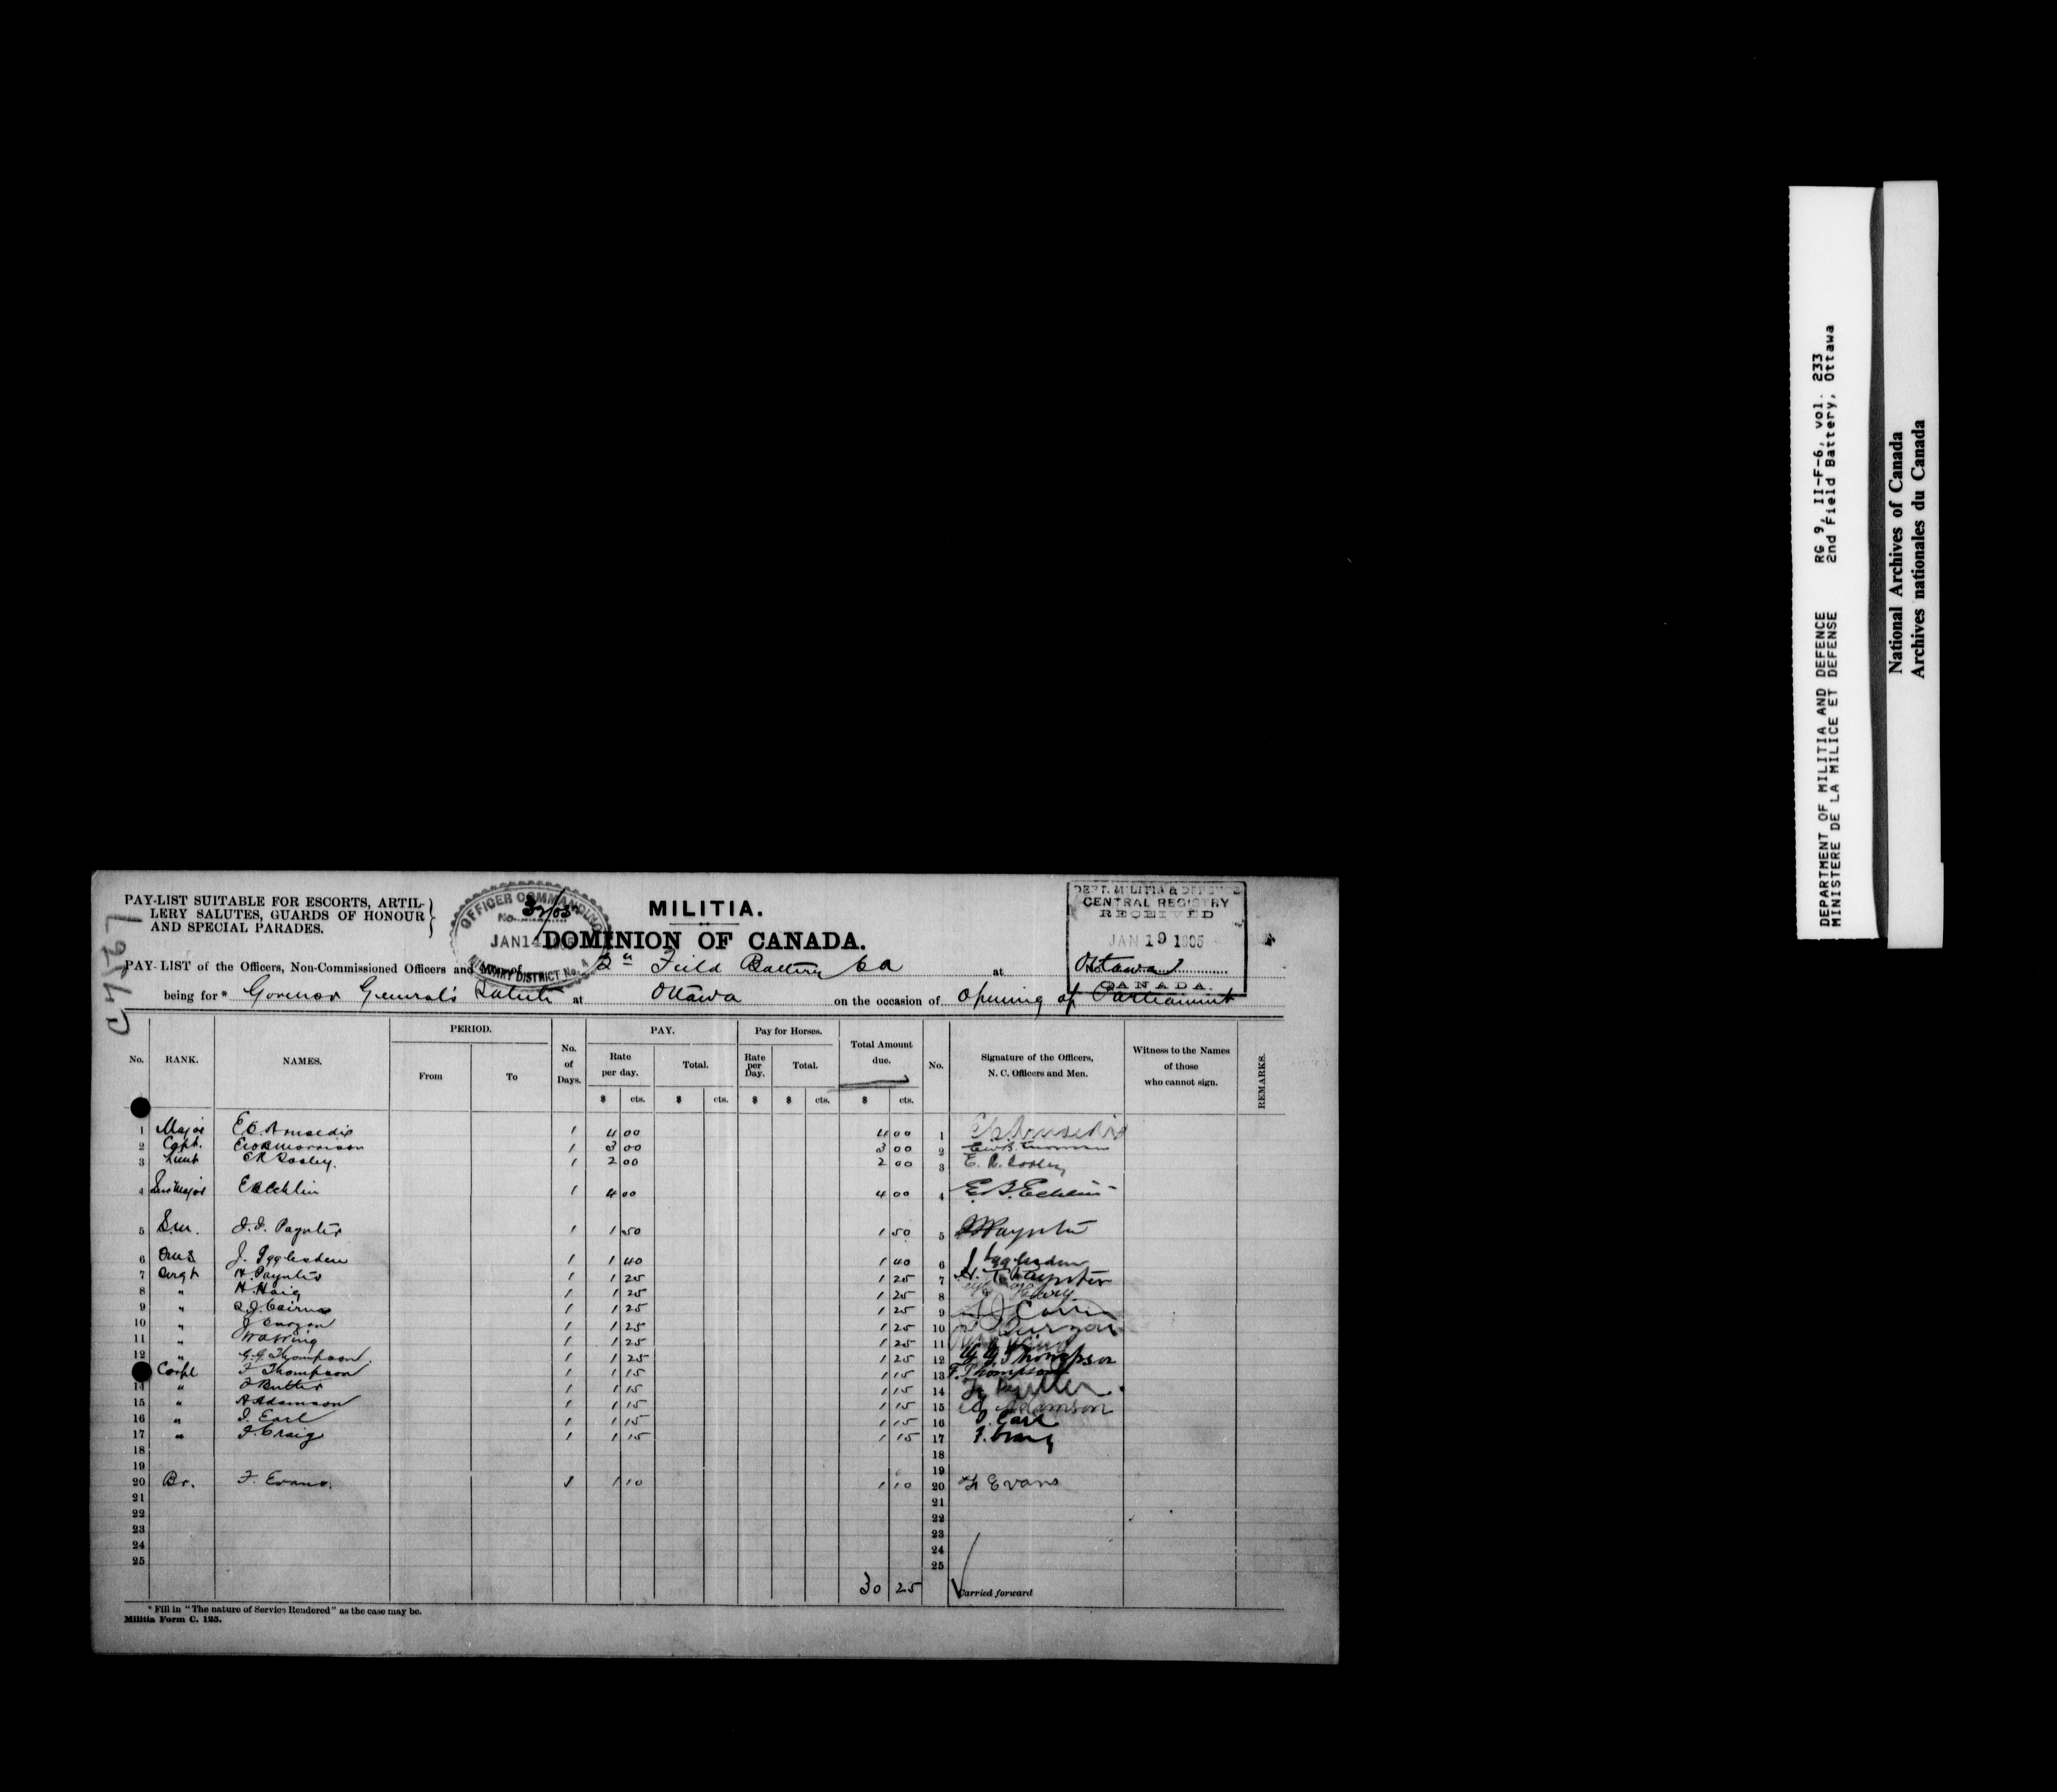 PAY-LIST SUITABLE FOR ESCORTS, ARTIL-
LERY SALUTES, GUARDS OF HONOUR
AND SPECIAL PARADES.
OFFICER COMMANDING
No. 32/05
JAN 14 1905
MILITARY DISTRICT No. 4
MILITIA.
DOMINION OF CANADA.
DEPT. MILITIA & DEFENCE
CENTRAL REGISTRY
RECEIVED
JAN 19 1905
CANADA.
PAY-LIST of the Officers, Non-Commissioned Officers and Men of 2nd Field Battery CA at Ottawa
being for* Govenor General's Salute at Ottawa on the occasion of Opening of Parliament
No. RANK. NAMES. PERIOD. From To No. of Days. PAY. Rate per day. $ cts. Total. $ cts. Pay for Horses. Rate per Day. $ Total. $ cts. Total Amount due. $ cts. No. Signature of the Officers, N. C. Officers and Men. Witness to the Names of those who cannot sign. REMARKS.
1 Major 1 4 00 4 00 1
2 Capt. EWB Morrison 1 3 00 3 00 2
3 Lieut 1 2 00 2 00 3
4 1 4 00 4 00 4 E.B. Echlin
5 S.M. Paynter 1 1 50 1 50 5 Paynter
6 QMS J. Iggleden 1 1 40 1 40 6 J Iggleden
7 Sergt H. Paynter 1 1 25 1 25 7 Paynter
8 " H. Haig 1 1 25 1 25 8
9 " Cairns 1 1 25 1 25 9
10 " J Curzon 1 1 25 1 25 10 Curzon
11 " 1 1 25 1 25 11
12 " G.G. Thompson. 1 1 25 1 25 12 Thompson
Corpl F Thompson 1 1 15 1 15 13 F. Thompson
14 " Butler 1 1 15 1 15 14 Butler
15 " A Adamson 1 1 15 1 15 15 A Adamson
16 " Earl 1 1 15 1 15 16 Earl
17 " Craig 1 1 15 1 15 17 Craig
18 18
19 19
20 Br. F. Evans. 1 1 10 1 10 20 F Evans
21 21
22 22
23 23
24 24
25 25
30 25 Carried forward
* Fill in "The nature of Service Rendered" as the case may be.
Militia Form C. 125.
DEPARTMENT OF MILITIA AND DEFENCE RG 9, II-F-6, vol. 233
MINISTERE DE LA MILICE ET DEFENSE 2nd Field Battery, Ottawa
National Archives of Canada
Archives nationales du Canada